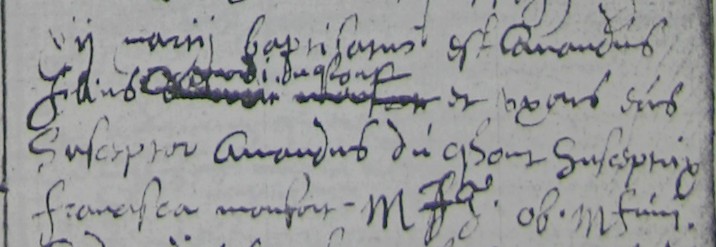 vij martij baptisatus est Amandus
filius Amandi du qhont et uxoris eius
Susceptor Amandus du qhont Susceptrix
francisca monfort - M ob.